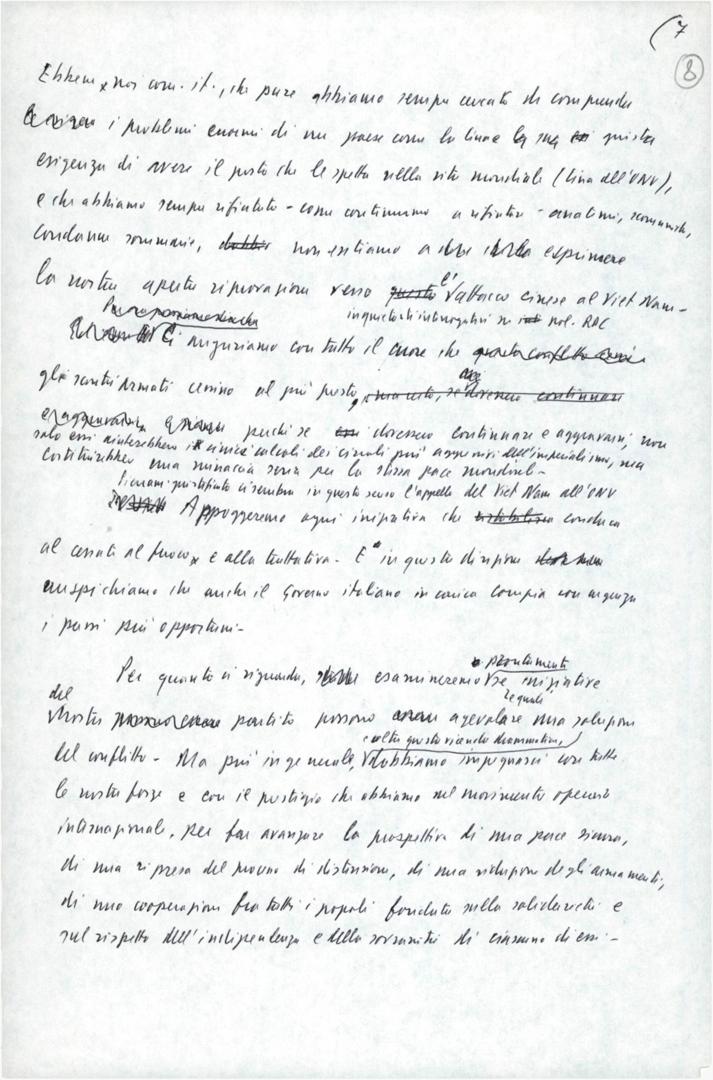 (7
8
Ebbene, noi com. it., che pure abbiamo sempre cercato di comprendere
i problemi enormi di un paese come la Cina e la sua giusta
esigenza di avere il posto che le spetta nella vita mondiale (Cina all'ONU),
e che abbiamo sempre rifiutato - come continuiamo a rifiutare - anatemi, scomuniche,
condanne sommarie, non esitiamo a esprimere
la nostra aperta riprovazione verso l'attacco cinese al Viet Nam -
inquietanti interrogativi su pol. RPC
Ci auguriamo con tutto il cuore che
gli scontri armati cessino al più presto,
perché se dovessero continuare e aggravarsi, non
solo essi aiuterebbero i cinici calcoli dei circoli più aggressivi dell'imperialismo, ma
costituirebbero una minaccia seria per la stessa pace mondiale -
giustificato ci sembra in questo senso l'appello del Viet Nam all'ONU
Appoggeremo ogni iniziativa che conduca
al cessate al fuoco e alla trattativa. E' in questa direzione
auspichiamo che anche il Governo italiano in carica compia con urgenza
i passi più opportuni -
Per quanto ci riguarda, esamineremo prontamente se iniziative
e quali
del nostro partito possono agevolare una soluzione
del conflitto - Ma più in generale, oltre questa vicenda drammatica, dobbiamo impegnarci con tutte
le nostre forze e con il prestigio che abbiamo nel movimento operaio
internazionale, per far avanzare la prospettiva di una pace sicura,
di una ripresa del processo di distensione, di una riduzione degli armamenti,
di una cooperazione fra tutti i popoli fondata sulla solidarietà e
sul rispetto dell'indipendenza e della sovranità di ciascuno di essi -